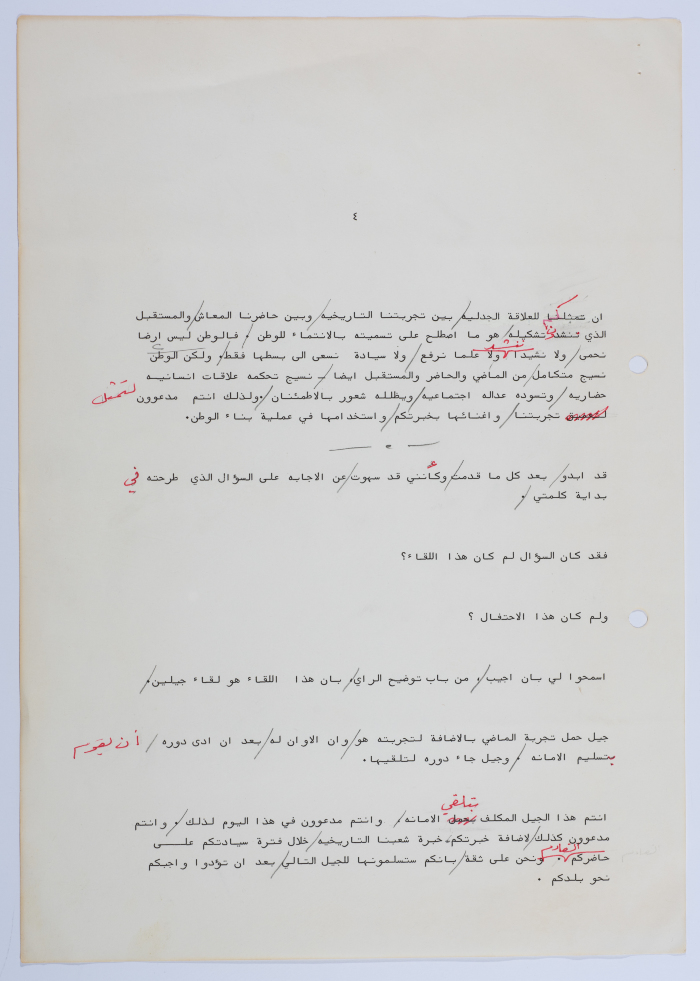 ٤
ان تمثلكم للعلاقة الجدليه بين تجربتنا التاريخيه وبين حاضرنا المعاش والمستقبل
الذي تنشدون تشكيله هو ما اصطلح على تسميته بالانتماء للوطن . فالوطن ليس ارضا
ننشد
نحمى ولا نشيدا ولا علما نرفع ولا سيادة نسعى الى بسطها فقط، ولكن الوطن
نسيج متكامل من الماضي والحاضر والمستقبل ايضا ـ نسيج تحكمه علاقات انسانيه
حضاريه وتسوده عداله اجتماعيه ويظلله شعور بالاطمئنان .ولذلك انتم مدعوون لتمثل
تجربتنا واغنائها بخبرتكم واستخدامها في عملية بناء الوطن.
قد ابدو بعد كل ما قدمت وكأنني قد سهوت عن الاجابه على السؤال الذي طرحته في
بداية كلمتي .
فقد كان السؤال لم كان هذا اللقاء؟
ولم كان هذا الاحتفال ؟
اسمحوا لي بان اجيب، من باب توضيح الراي، بان هذا اللقاء هو لقاء جيلين.
جيل حمل تجربة الماضي بالاضافة لتجربته هو وان الاوان له بعد ان ادى دوره أن يقوم
بتسليم الامانه . وجيل جاء دوره لتلقيها.
بتلقي
انتم هذا الجيل المكلف الامانه، وانتم مدعوون في هذا اليوم لذلك . وانتم
مدعوون كذلك لاضافة خبرتكم، خبرة شعبنا التاريخيه خلال فترة سيادتكم علــى
القادم
حاضركم . ونحن على ثقة بانكم ستسلمونها للجيل التالي بعد ان تؤدوا واجبكم
نحو بلدكم .